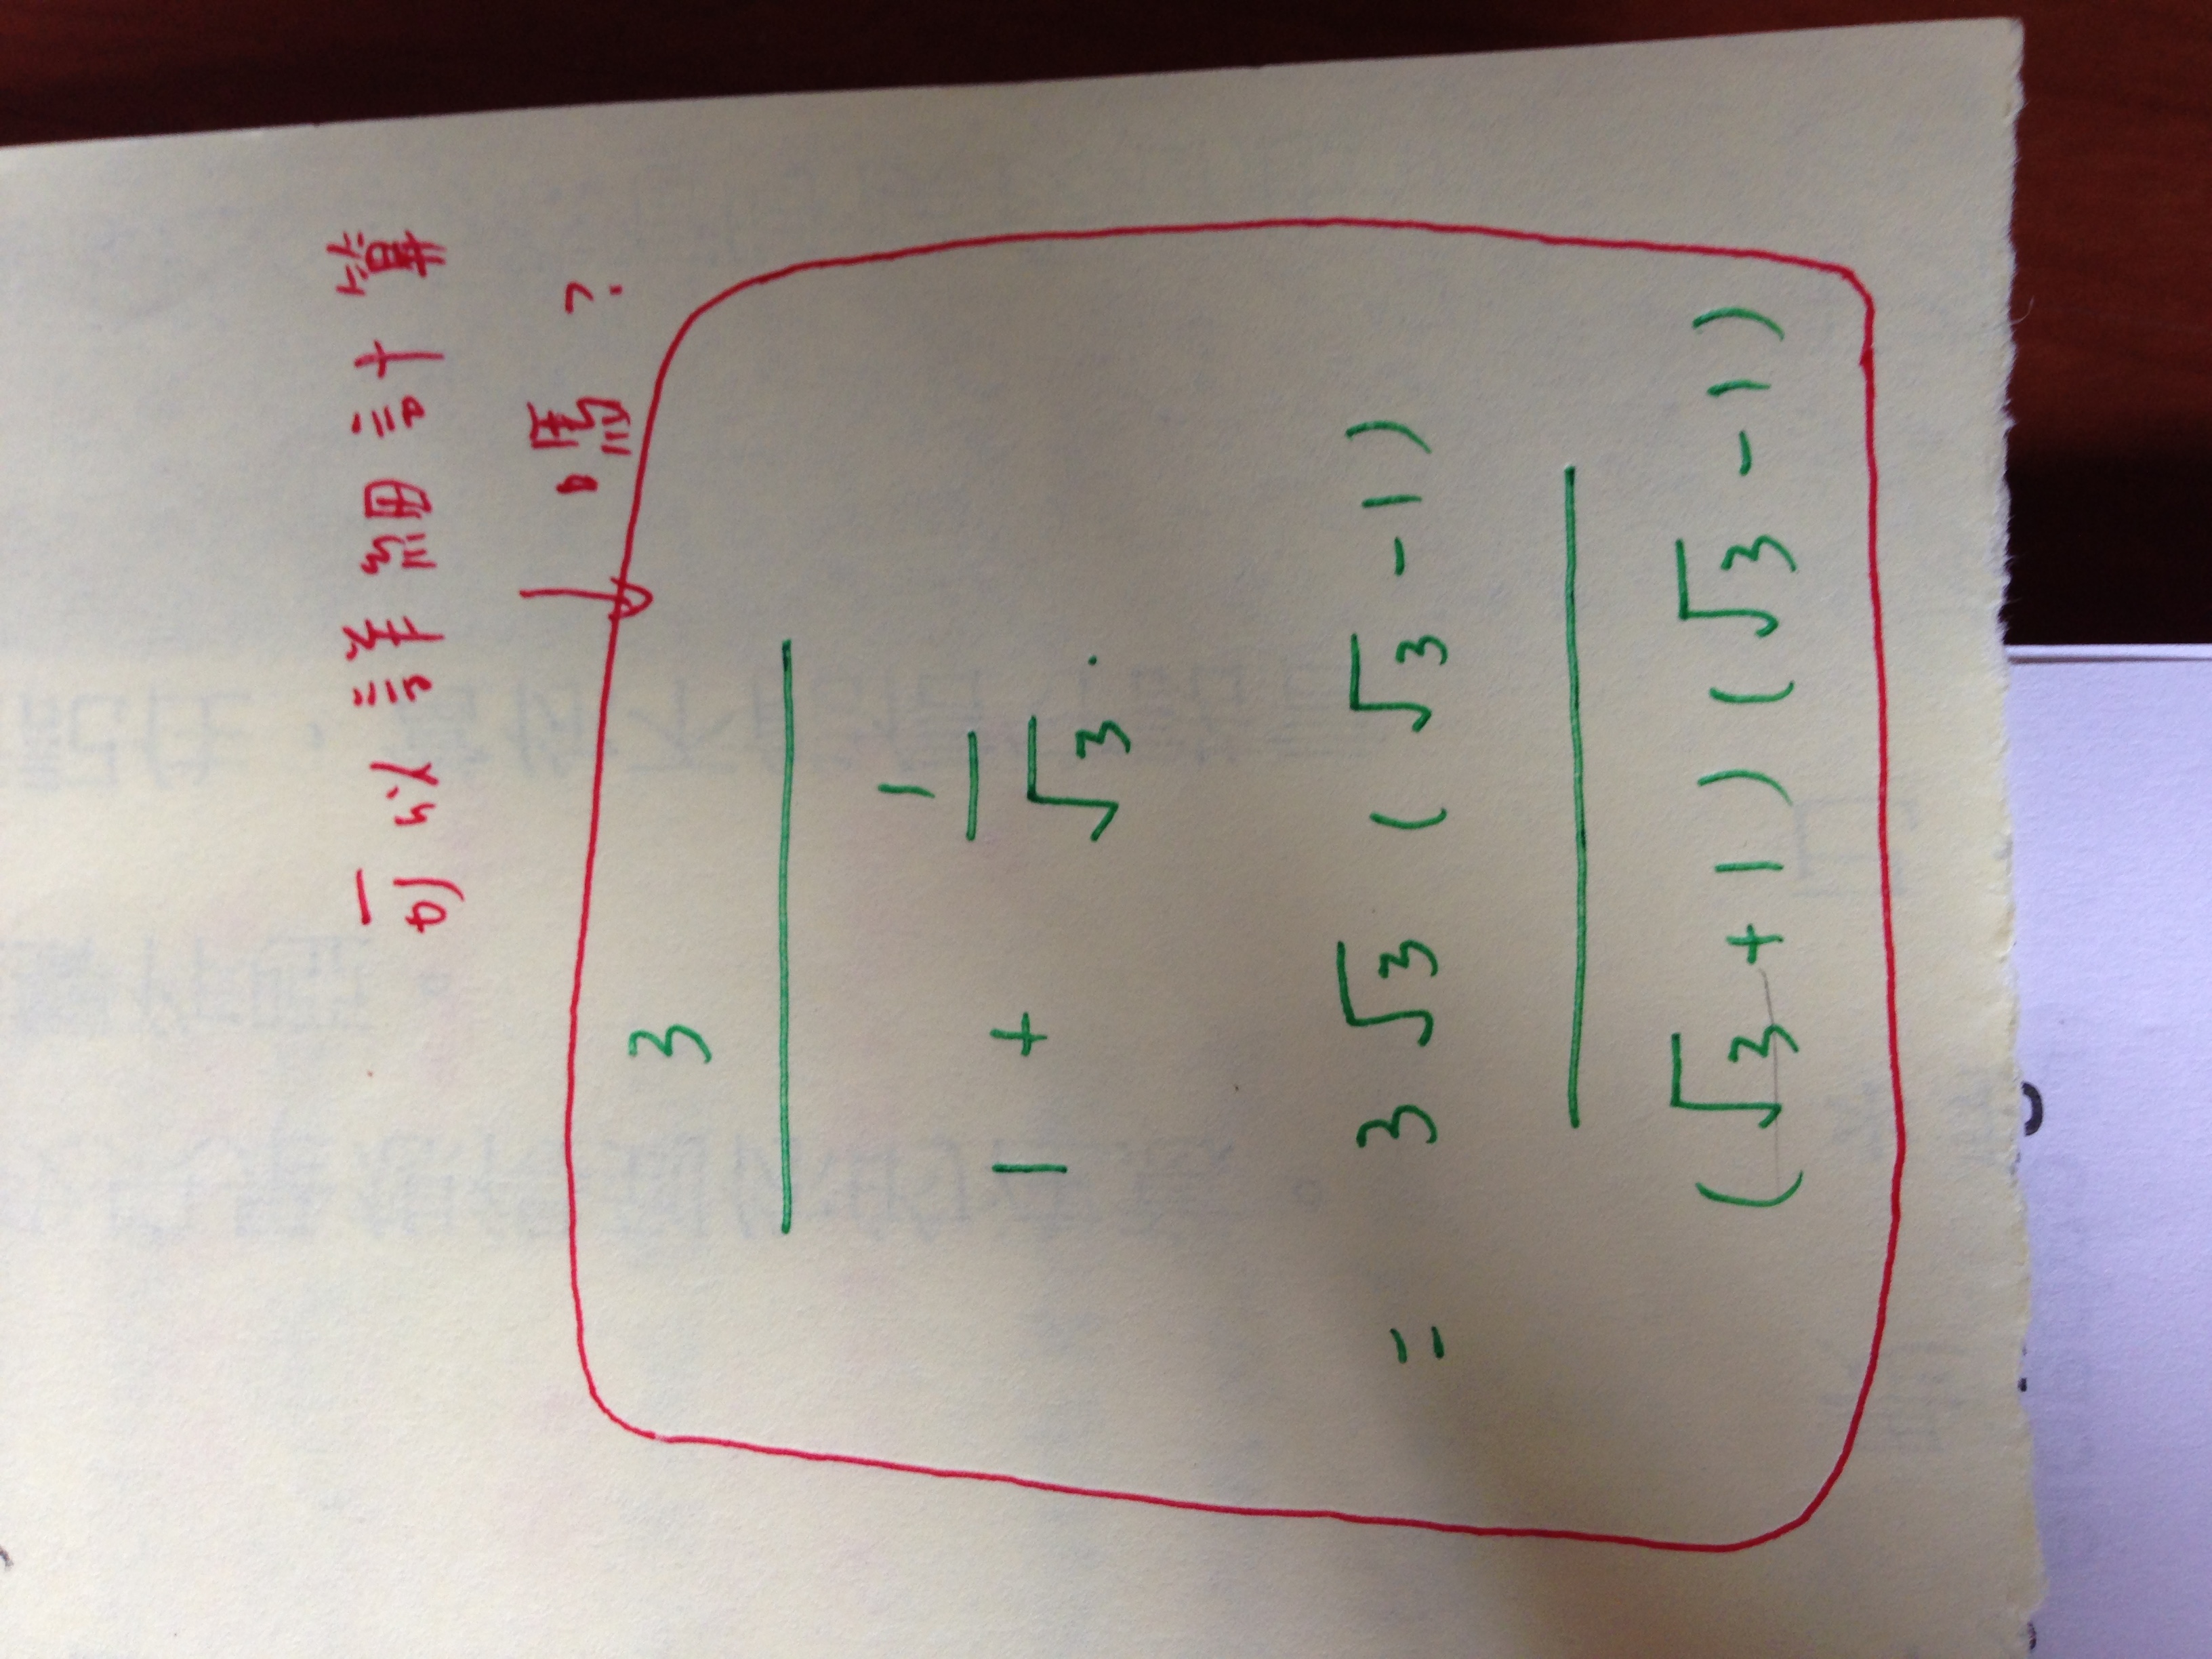 可以詳細計算
嗎?
3
1 + 1/√3
= 3√3 (√3 - 1)
(√3 + 1) (√3 - 1)